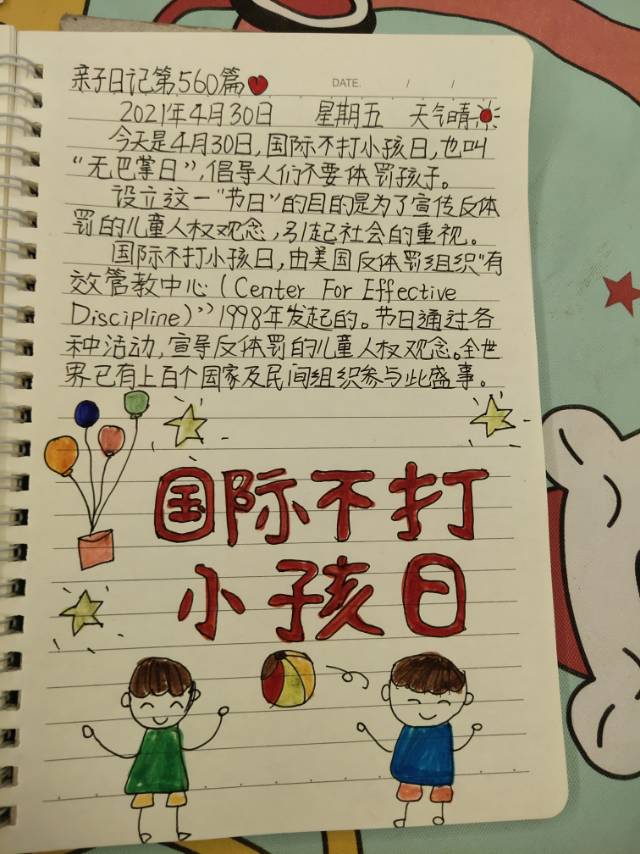 亲子日记第560篇
DATE. / /
2021年4月30日 星期五 天气晴
今天是4月30日,国际不打小孩日,也叫
“无巴掌日”,倡导人们不要体罚孩子。
设立这一“节日”的目的是为了宣传反体
罚的儿童人权观念,引起社会的重视。
国际不打小孩日,由美国反体罚组织“有
效管教中心(Center For Effective
Discipline)”1998年发起的。节日通过各
种活动,宣导反体罚的儿童人权观念。全世
界已有上百个国家及民间组织参与此盛事。
国际不打
小孩日